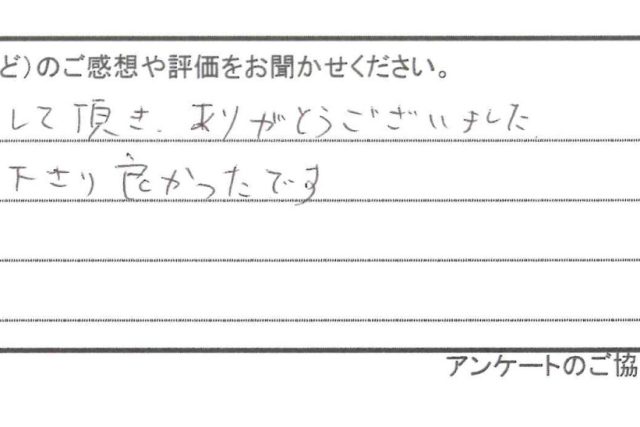 ど)のご感想や評価をお聞かせください。
して頂き、ありがとうございました
下さり良かったです
アンケートのご協